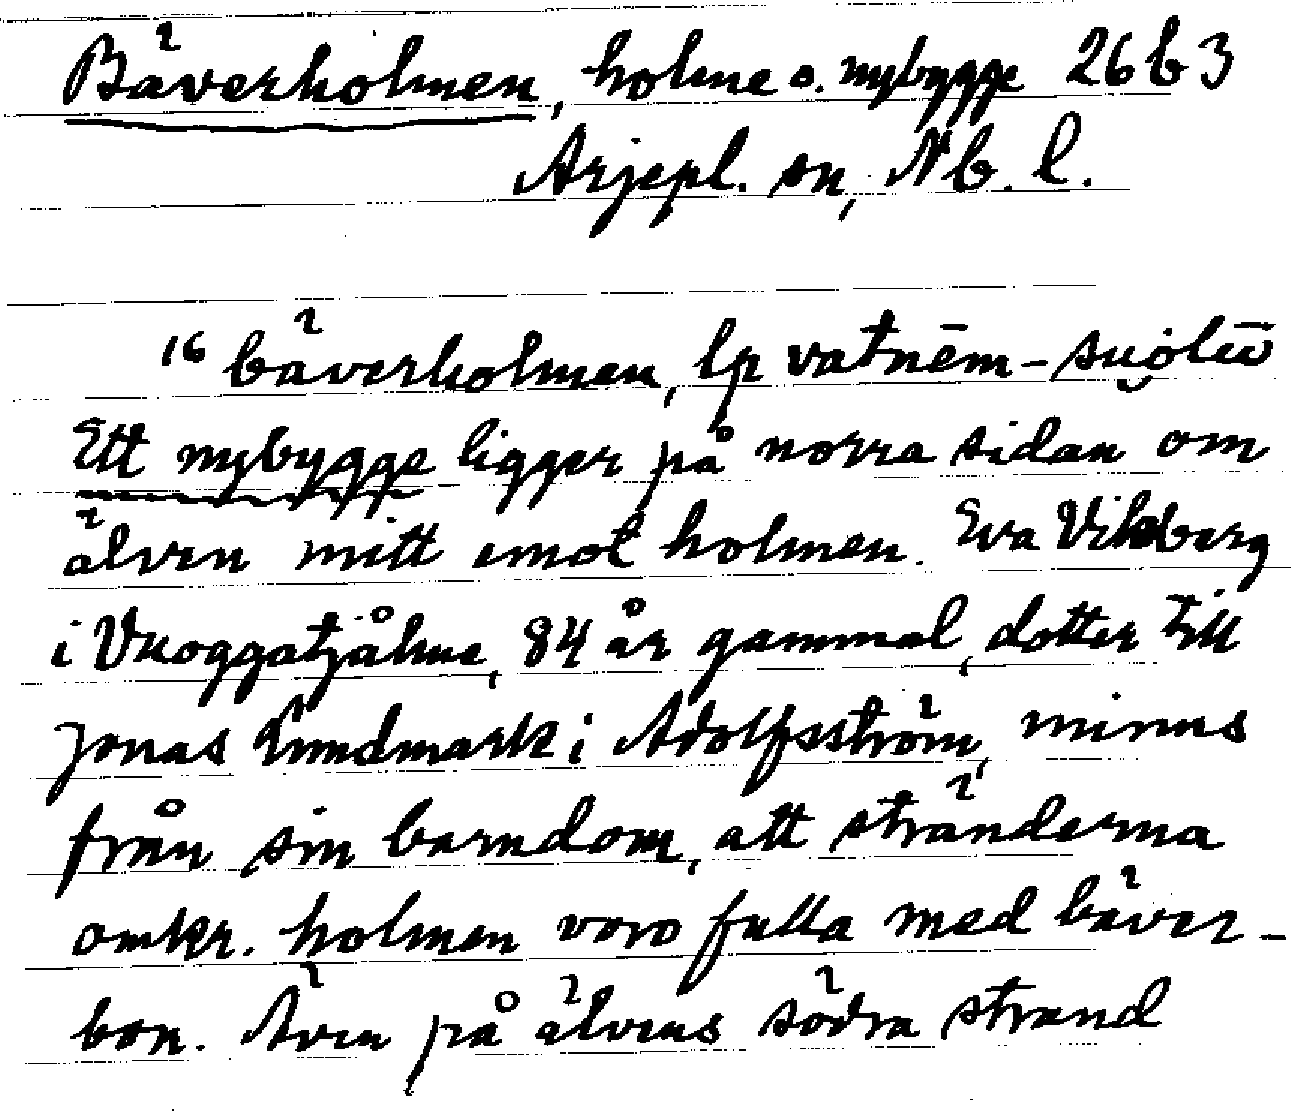 Bäverholmen, holme o. nybygge 26 b 3
Arjepl. sn, Nb. l.
16 bäverholmen, lp vatnēm-suölū
Ett nybygge ligger på norra sidan om
älven mitt emot holmen. Eva Vikberg
i Vuoggatjålme, 84 år gammal, dotter till
Jonas Lundmark i Adolfsström, minns
från sin barndom, att stränderna
omkr. holmen voro fulla med bäver-
bon. Även på älvens södra strand